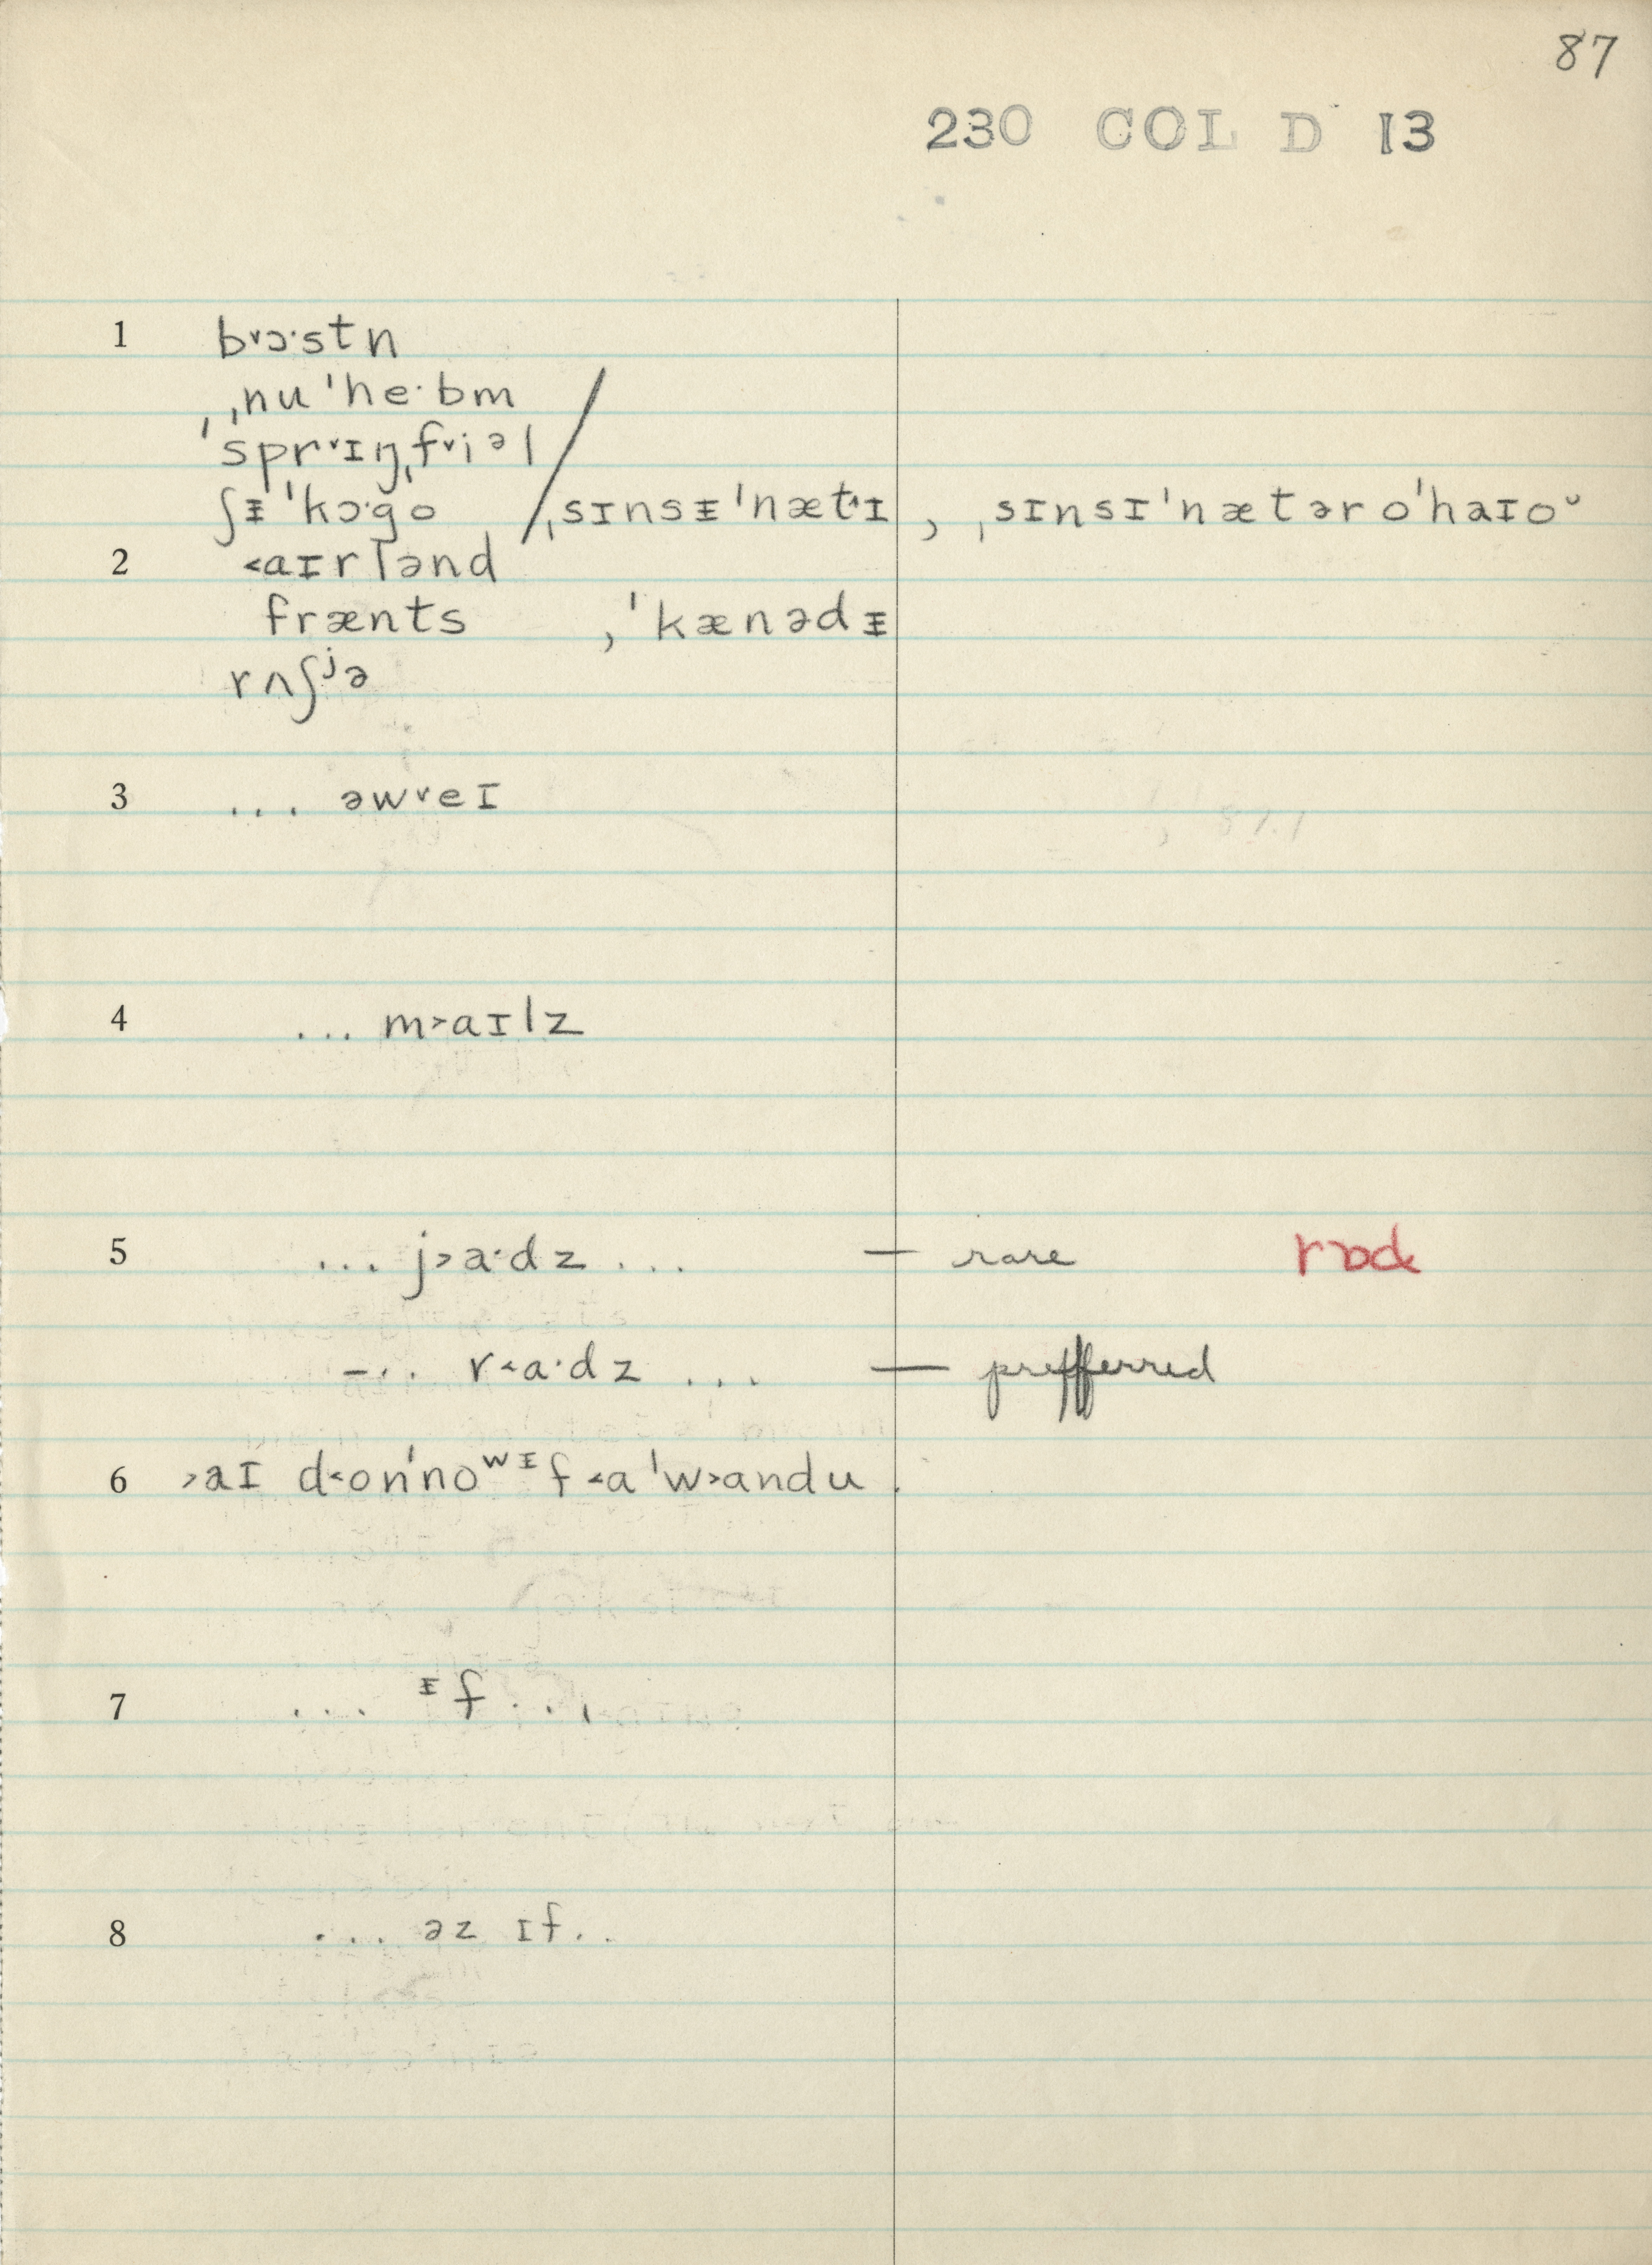 87
230 COL D 13
1 b˅ɔ·stn
, ˌnu ˈhe·bm
ˈspr˅ɪŋˌf˅iᵊl
ʃᵻˈkɔ·go / ˌsɪnsᵻˈnæt˄ɪ , ˌsɪnsɪˈnætəroˈhaɪoᵕ
2 ˂aɪrlənd
frænts , ˈkænədᵻ
rʌʃʲə
3 ... əw˅eɪ
4 ... m˃aɪlz
5 ... j˃a·dz ... — rare
— .. r˂a·dz ... — prefferred
6 ˃aɪ d˂onˈnoʷᵻf ˂aˈw˃andu .
7 ... ᵻf ...
8 ... əz ɪf..